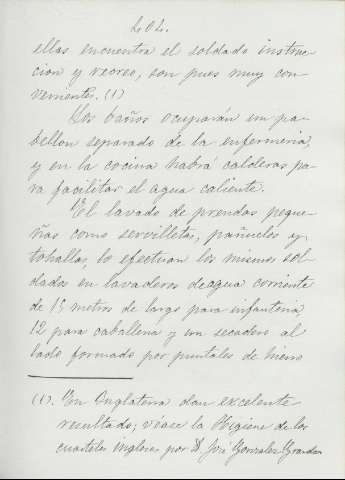 202.
ellas encuentra el soldado instruc-
cion y recreo, son pues muy con-
venientes. (1)
Los baños ocuparán un pa-
bellon separado de la enfermeria,
y en la cocina habrá calderas pa-
ra facilitar el agua caliente.
El lavado de prendas peque-
ñas como servilletas, pañuelos y
tohallas lo efectuan los mismos sol-
dados en lavaderos de agua corriente
de 15 metros de largo para infanteria
12 para caballeria y un secadero al
lado formado por puntales de hierro
(1). En Inglaterra dan excelente
resultado; véase la Higiene de los
cuarteles ingleses por D. José Gonzalez Grandas